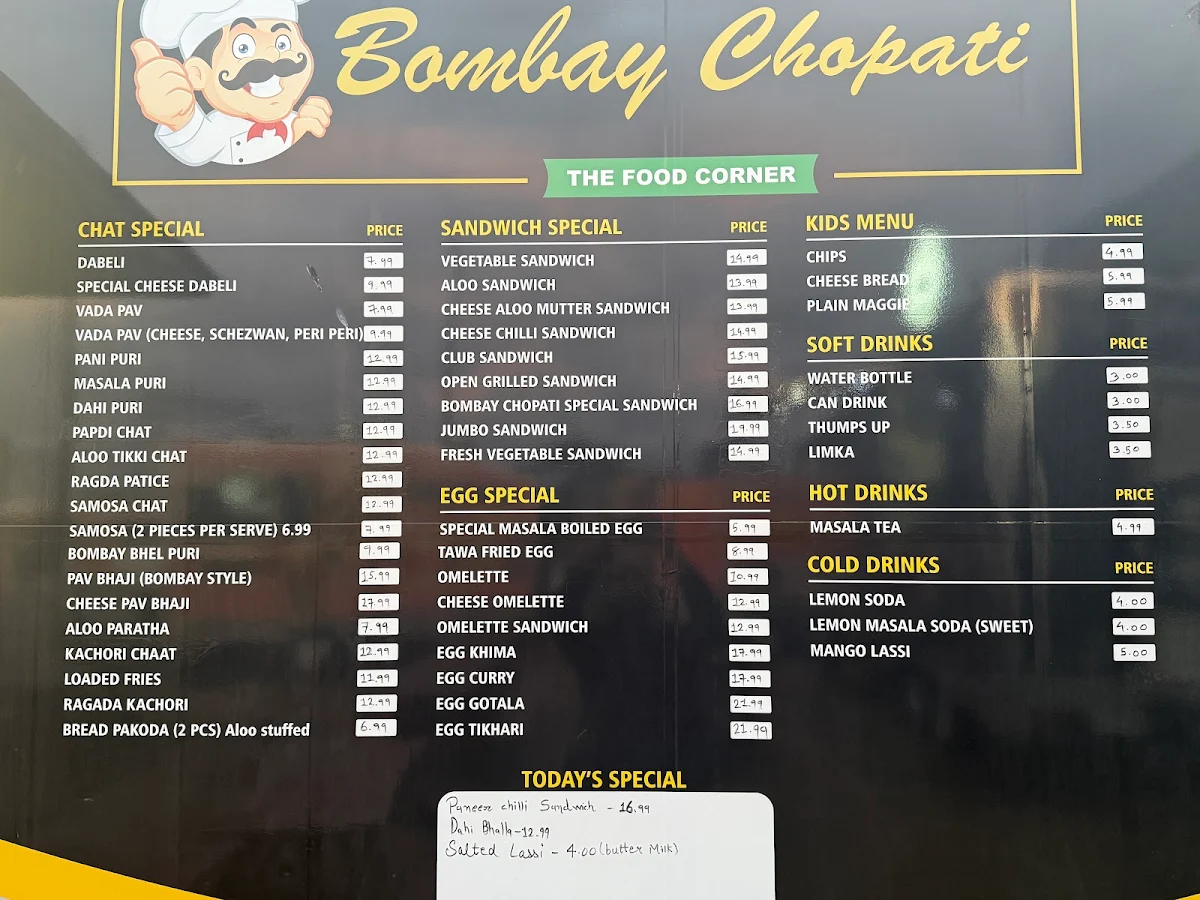 Bombay Chopati
THE FOOD CORNER
CHAT SPECIAL PRICE
DABELI 7.99
SPECIAL CHEESE DABELI 9.99
VADA PAV 7.99
VADA PAV (CHEESE, SCHEZWAN, PERI PERI) 9.99
PANI PURI 12.99
MASALA PURI 12.99
DAHI PURI 12.99
PAPDI CHAT 12.99
ALOO TIKKI CHAT 12.99
RAGDA PATICE 12.99
SAMOSA CHAT 12.99
SAMOSA (2 PIECES PER SERVE) 6.99 7.99
BOMBAY BHEL PURI 9.99
PAV BHAJI (BOMBAY STYLE) 15.99
CHEESE PAV BHAJI 17.99
ALOO PARATHA 7.99
KACHORI CHAAT 12.99
LOADED FRIES 11.99
RAGADA KACHORI 12.99
BREAD PAKODA (2 PCS) Aloo stuffed 6.99
SANDWICH SPECIAL PRICE
VEGETABLE SANDWICH 14.99
ALOO SANDWICH 13.99
CHEESE ALOO MUTTER SANDWICH 13.99
CHEESE CHILLI SANDWICH 14.99
CLUB SANDWICH 15.99
OPEN GRILLED SANDWICH 14.99
BOMBAY CHOPATI SPECIAL SANDWICH 16.99
JUMBO SANDWICH 19.99
FRESH VEGETABLE SANDWICH 14.99
EGG SPECIAL PRICE
SPECIAL MASALA BOILED EGG 5.99
TAWA FRIED EGG 8.99
OMELETTE 10.99
CHEESE OMELETTE 12.99
OMELETTE SANDWICH 12.99
EGG KHIMA 17.99
EGG CURRY 17.99
EGG GOTALA 21.99
EGG TIKHARI 21.99
KIDS MENU PRICE
CHIPS 4.99
CHEESE BREAD 5.99
PLAIN MAGGIE 5.99
SOFT DRINKS PRICE
WATER BOTTLE 3.00
CAN DRINK 3.00
THUMPS UP 3.50
LIMKA 3.50
HOT DRINKS PRICE
MASALA TEA 4.99
COLD DRINKS PRICE
LEMON SODA 4.00
LEMON MASALA SODA (SWEET) 4.00
MANGO LASSI 5.00
TODAY'S SPECIAL
Paneer chilli Sandwich - 16.99
Dahi Bhalla - 12.99
Salted Lassi - 4.00 (butter Milk)